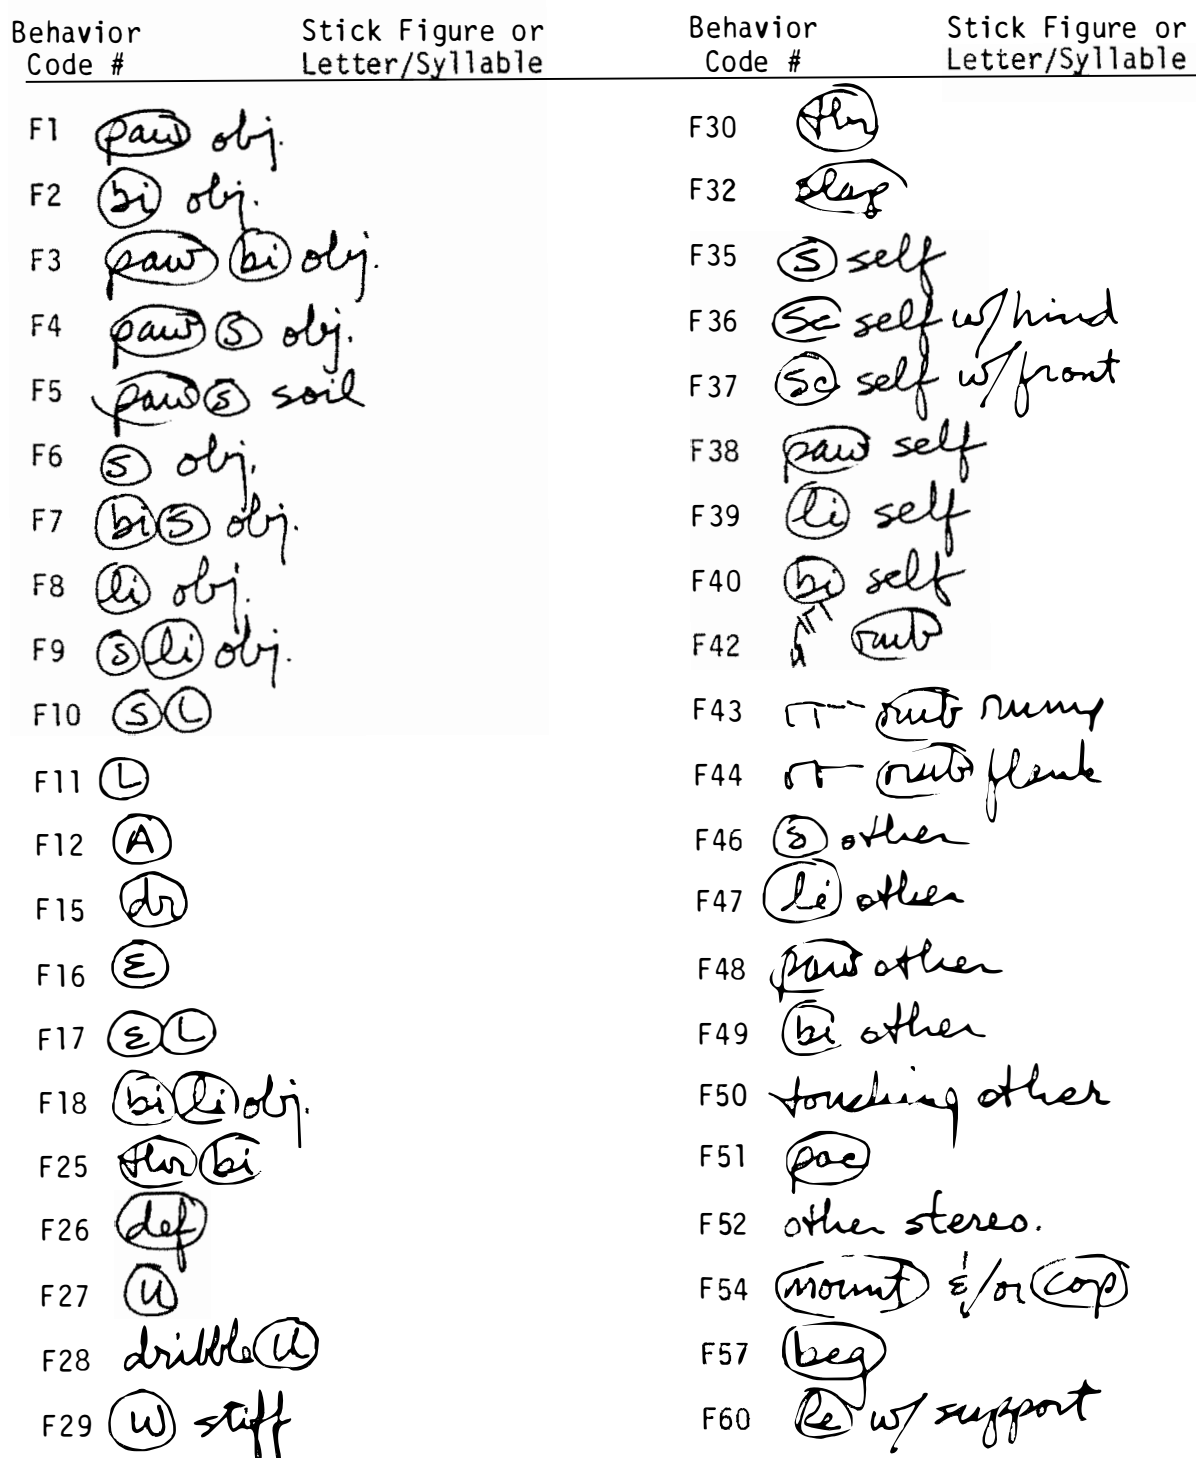 Behavior Code #
Stick Figure or Letter/Syllable
F1 paw obj.
F2 bi obj.
F3 paw bi obj.
F4 paw s obj.
F5 paw s soil
F6 s obj.
F7 bi s obj.
F8 li obj.
F9 s li obj.
F10 S L
F11 L
F12 A
F15 dr
F16 E
F17 E L
F18 bi li obj.
F25 thr bi
F26 def
F27 U
F28 dribble U
F29 W stiff
Behavior Code #
Stick Figure or Letter/Syllable
F30 thr
F32 slap
F35 S self
F36 Sc self w/ hind
F37 Sc self w/ front
F38 paw self
F39 li self
F40 bi self
F42 rub
F43 rub rump
F44 rub flank
F46 s other
F47 li other
F48 paw other
F49 bi other
F50 touching other
F51 pac
F52 other stereo.
F54 mount &/or cop
F57 beg
F60 Re w/ support